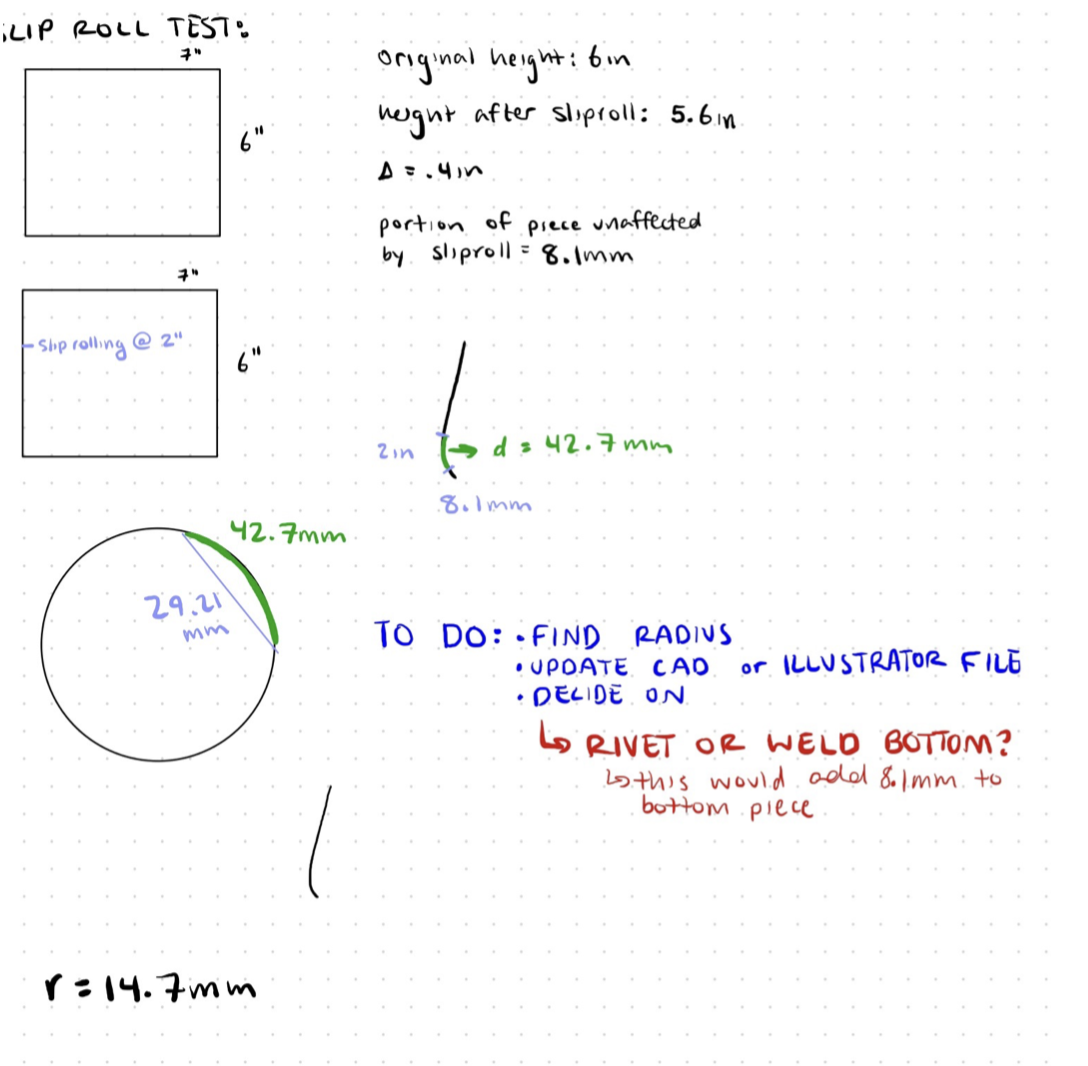 SLIP ROLL TEST:
7"
6"
original height: 6in
height after sliproll: 5.6in
Δ = .4in
portion of piece unaffected
by sliproll = 8.1mm
7"
- Slip rolling @ 2"
6"
2in
d = 42.7mm
8.1mm
42.7mm
29.21
mm
TO DO: • FIND RADIUS
• UPDATE CAD or ILLUSTRATOR FILE
• DECIDE ON
↳ RIVET OR WELD BOTTOM?
↳ this would add 8.1mm to
bottom piece
r = 14.7mm